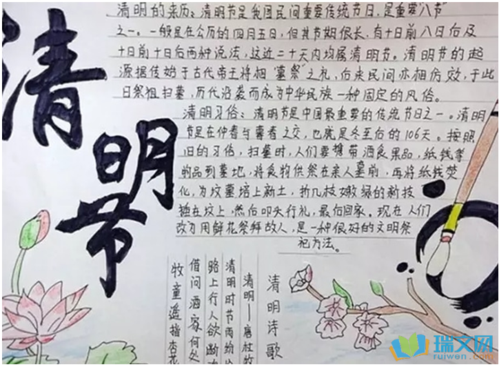 清明节
清明的来历：清明节是我国民间重要传统节日，是重要"八节"
之一。一般是在公历的四月五日，但其节期很长，有十日前八日后及
十日前十日后两种说法，这近二十天内均属清明节。清明节的起
源据传始于古代帝王将相"墓祭"之礼，后来民间亦相仿效，于此
日祭祖扫墓，历代沿袭而成为中华民族一种固定的风俗。
清明习俗：清明节是中国最重要的传统节日之一。清明
节是在仲春与暮春之交，也就是冬至后的106天。按照
旧的习俗，扫墓时，人们要携带酒食果品，纸钱等
物品到墓地，将食物供祭在亲人墓前，再将纸钱焚
化，为坟墓培上新土，折几枝嫩绿的新枝
插在坟上，然后叩头行礼，最后回家。现在人们
改为用鲜花祭拜故人，是一种很好的文明祭
祀方法。
清明诗歌
清明
清明时节雨纷
路上行人欲断
借问酒家何处
牧童遥指杏花
瑞文网
ruiwen.com